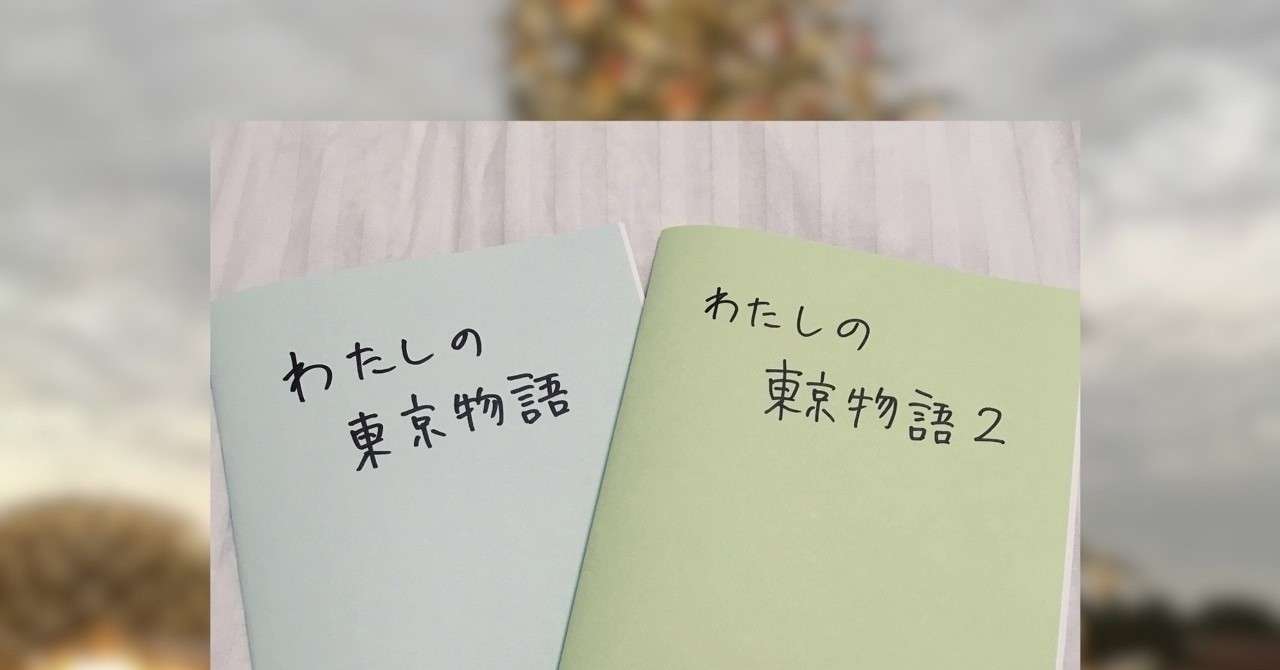 わたしの
東京物語
わたしの
東京物語2